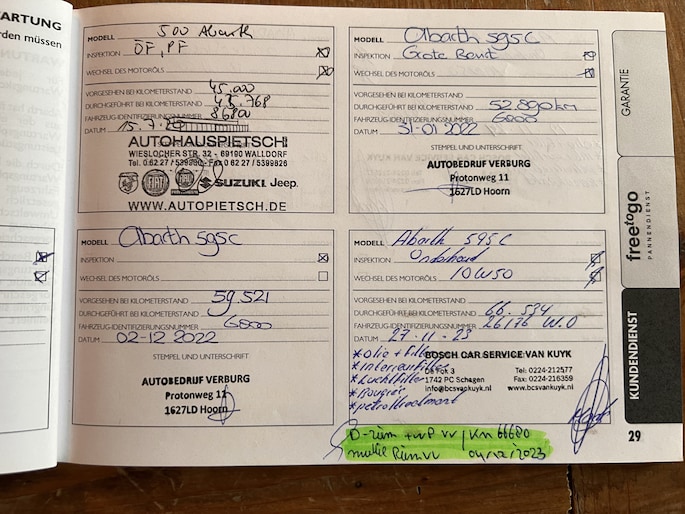 ARTUNG
rden müssen
MODELL 500 Abarth
INSPEKTION ÖF, PF
WECHSEL DES MOTORÖLS
VORGESEHEN BEI KILOMETERSTAND 45.000
DURCHGEFÜHRT BEI KILOMETERSTAND 43.768
FAHRZEUG-IDENTIFIZIERUNGSNUMMER
DATUM 15.7.
AUTOHAUSPIETSCH
WIESLOCHER STR. 32 - 69190 WALLDORF
Tel. 0 62 27 / 539980 - Fax 0 62 27 / 5399826
SUZUKI Jeep
WWW.AUTOPIETSCH.DE
MODELL Abarth 595C
INSPEKTION Grote Beurt
WECHSEL DES MOTORÖLS
VORGESEHEN BEI KILOMETERSTAND
DURCHGEFÜHRT BEI KILOMETERSTAND 52.890km
FAHRZEUG-IDENTIFIZIERUNGSNUMMER
DATUM 31-01 2022
STEMPEL UND UNTERSCHRIFT
AUTOBEDRIJF VERBURG
Protonweg 11
1627LD Hoorn
MODELL Abarth 595C
INSPEKTION
WECHSEL DES MOTORÖLS
VORGESEHEN BEI KILOMETERSTAND 59.521
DURCHGEFÜHRT BEI KILOMETERSTAND
FAHRZEUG-IDENTIFIZIERUNGSNUMMER
DATUM 02-12 2022
STEMPEL UND UNTERSCHRIFT
AUTOBEDRIJF VERBURG
Protonweg 11
1627LD Hoorn
MODELL Abarth 595C
INSPEKTION Onderhoud
WECHSEL DES MOTORÖLS 10W50
VORGESEHEN BEI KILOMETERSTAND
DURCHGEFÜHRT BEI KILOMETERSTAND 66.534
FAHRZEUG-IDENTIFIZIERUNGSNUMMER 26176 W.O
DATUM 27-11-23
STEMPEL UND UNTERSCHRIFT
*olie + filter
BOSCH CAR SERVICE VAN KUYK
*interieurfilter
De Fok 3 Tel: 0224-212577
*Luchtfilter
1742 PC Schagen Fax: 0224-216359
info@bcsvankuyk.nl www.bcsvankuyk.nl
*Bougies
D-riem + wP vv / Km 66680
multi Riem vv 04/12/2023
GARANTIE
freetogo
PANNENDIENST
KUNDENDIENST
29